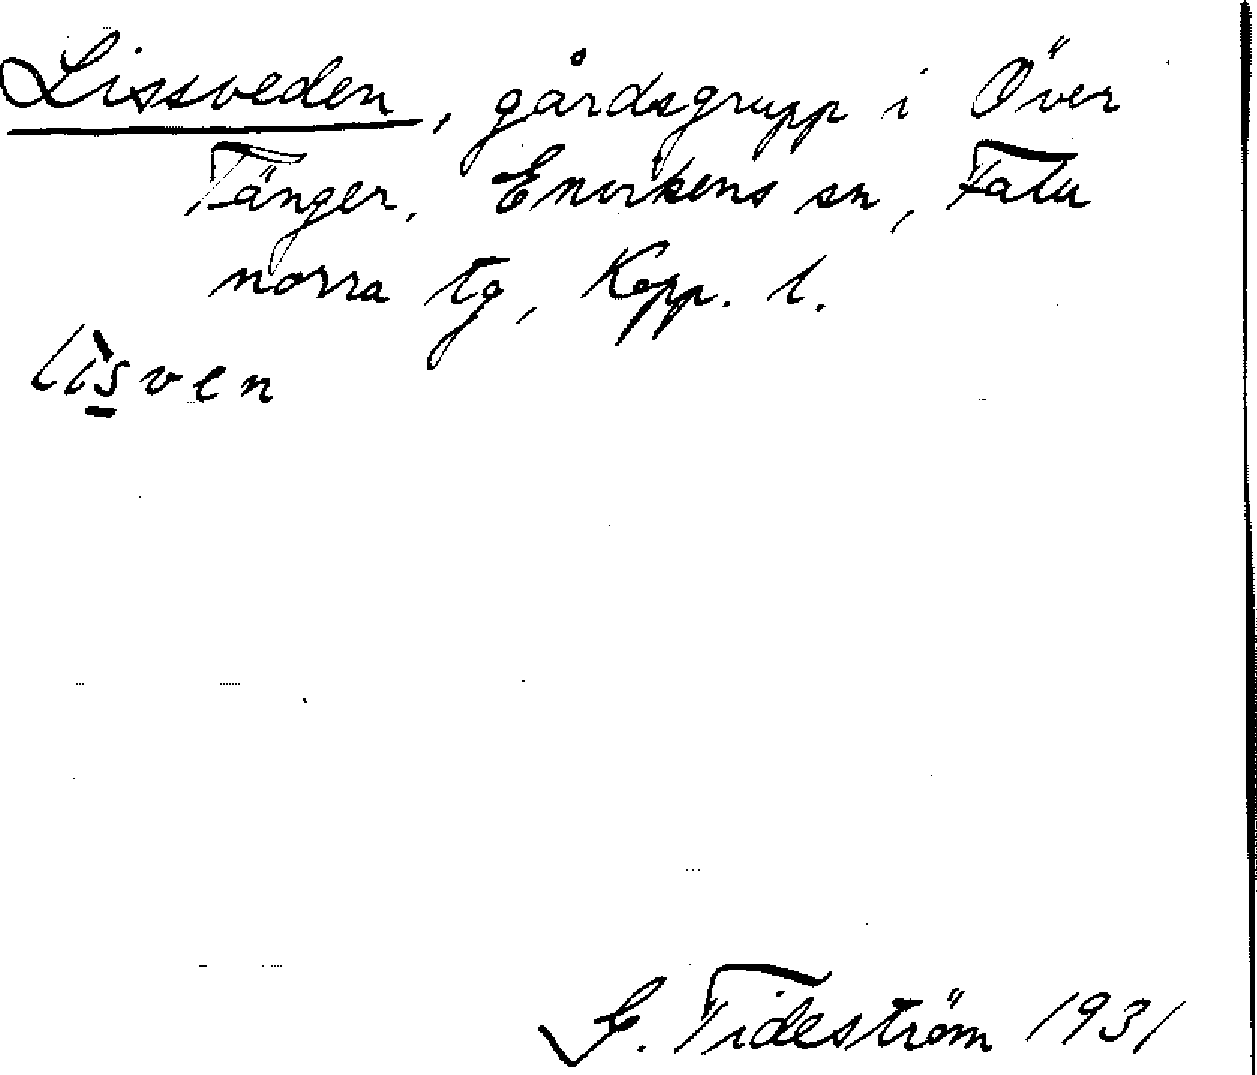 Lissveden, gårdsgrupp i Över
Tänger, Envikens sn, Falu
norra tg, Kopp. l.
lìs̱ven
G. Tideström 1931